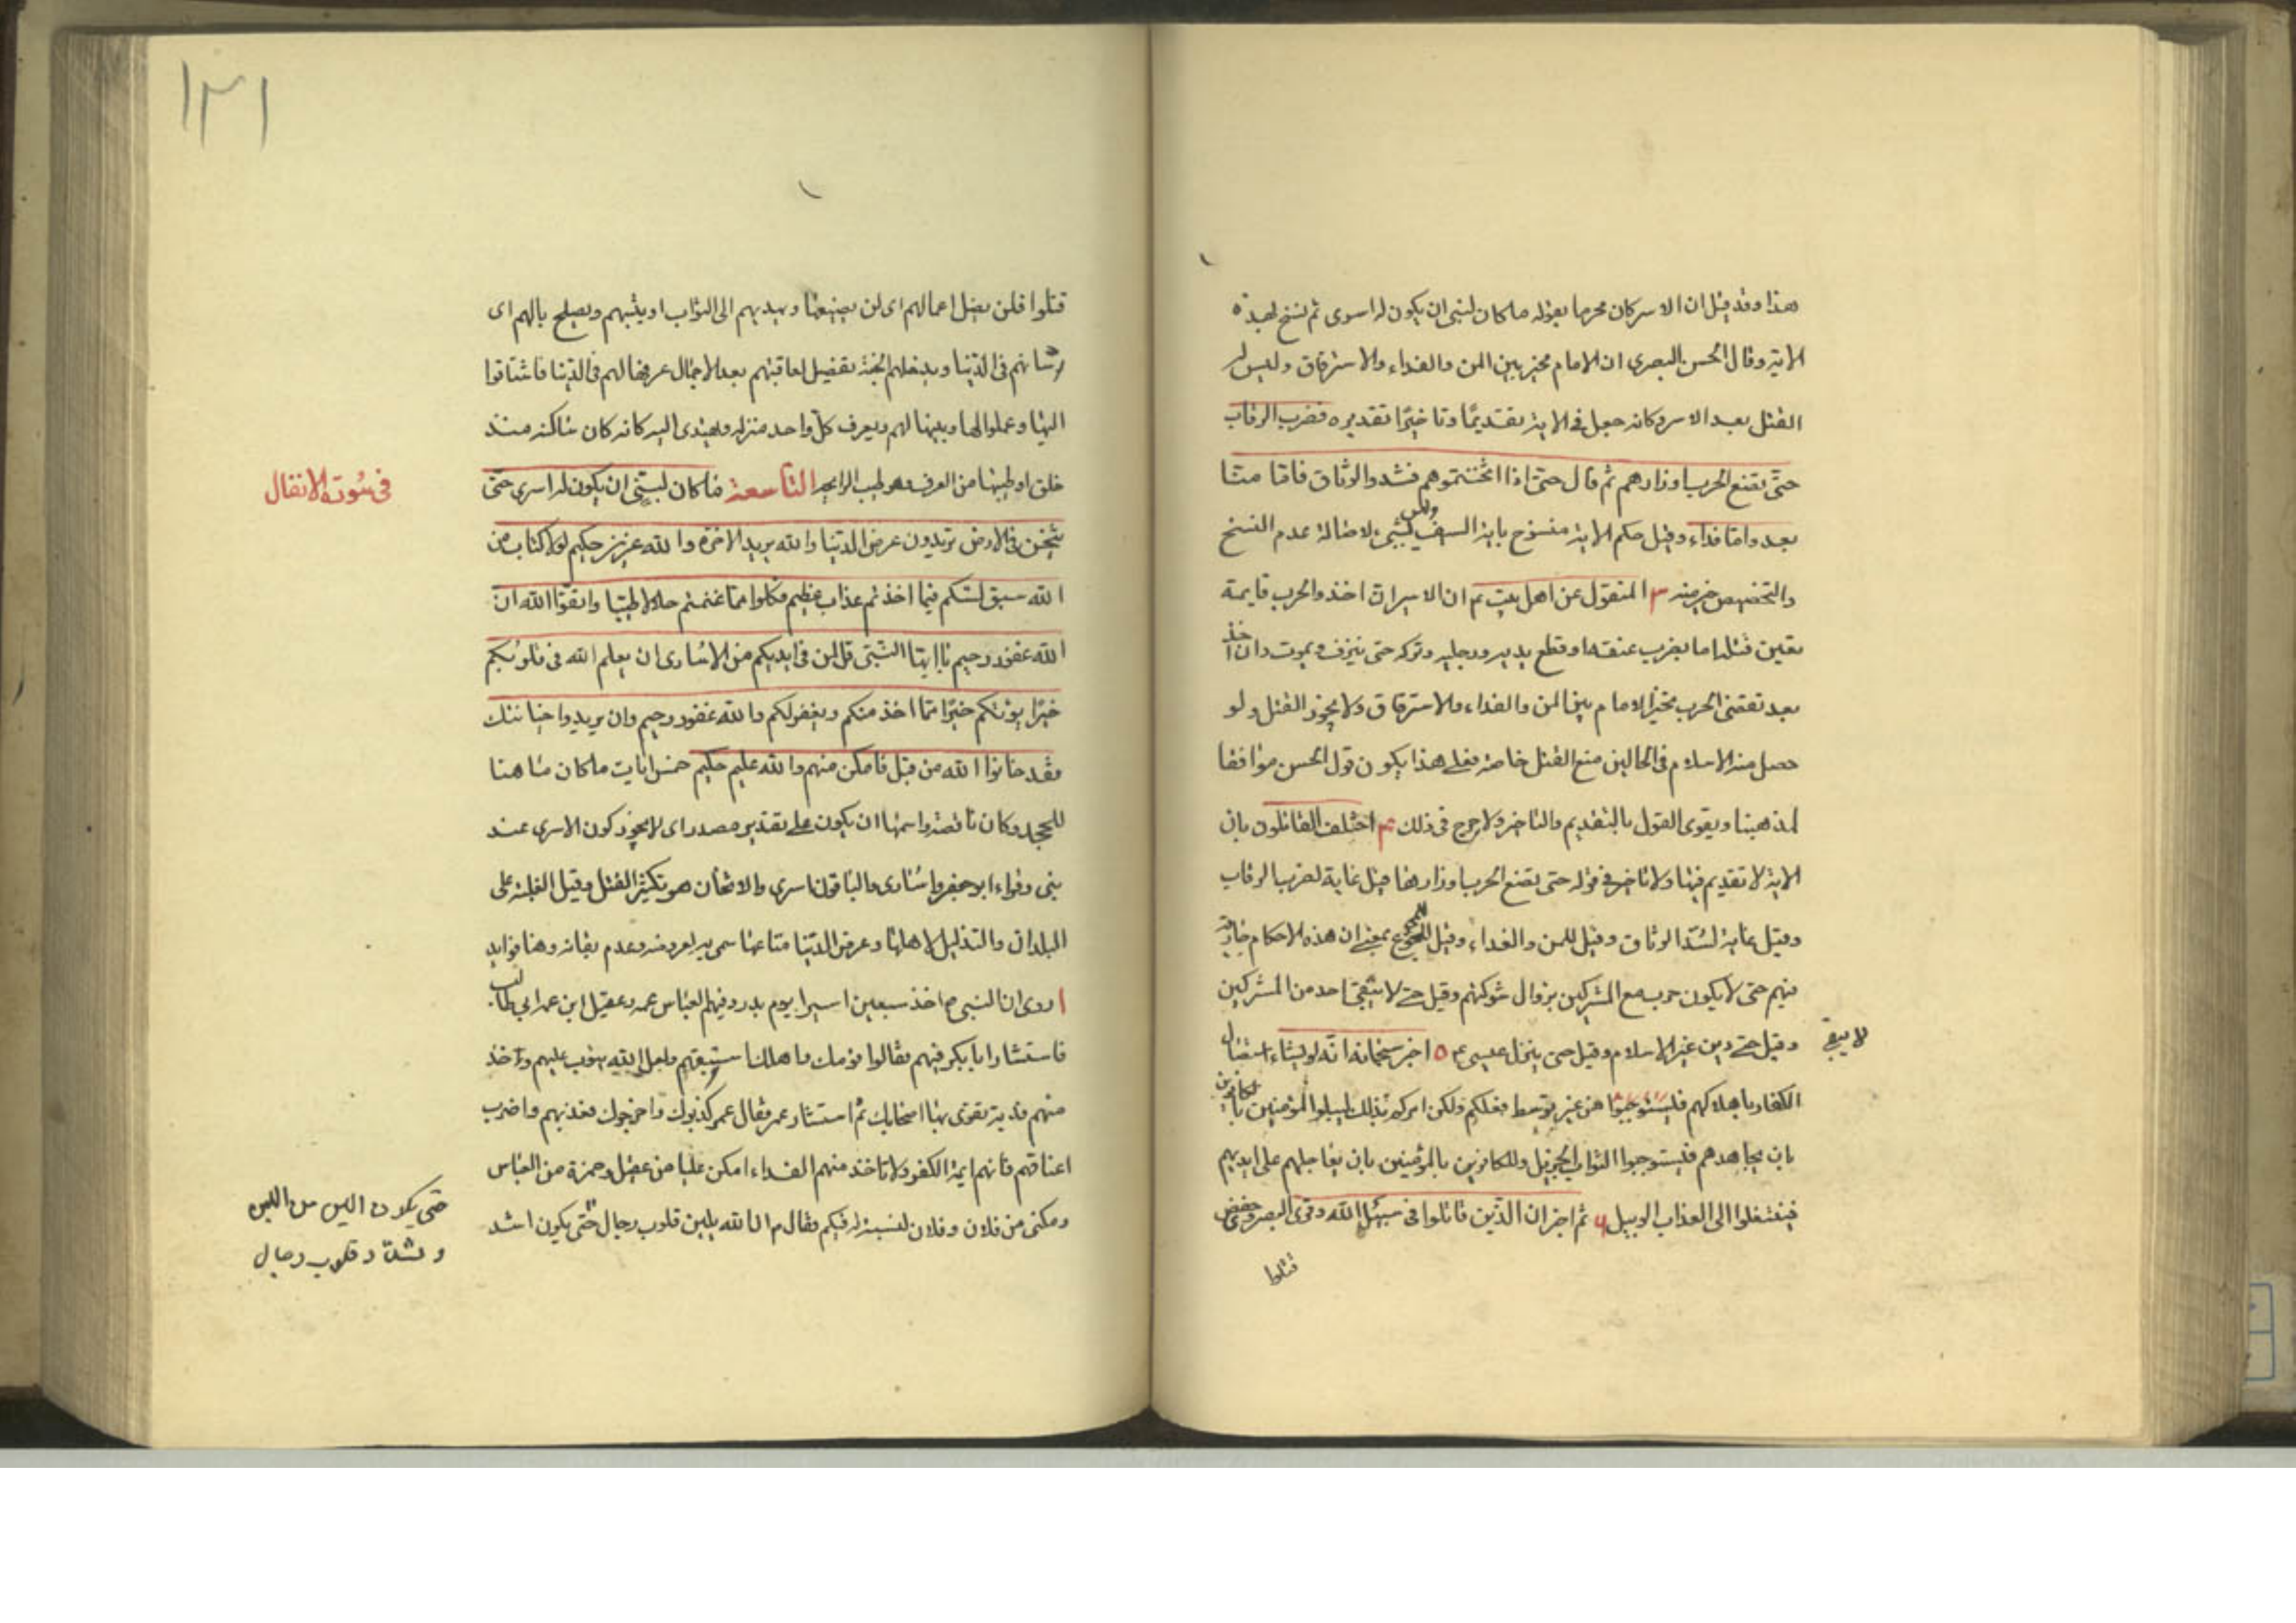 هذا وقد قيل ان الاسر كان محرما بقوله ما كان لنبى ان يكون له اسرى ثم نسخ بهذه
الاية وقال الحسن البصرى ان الامام مخير بين المن والفداء والاسترقاق وليس له
القتل بعد الاسر وكانه جعل فى الاية تقديمًا وتاخيرًا تقديره فضرب الرقاب
حتى تضع الحرب اوزارهم ثم قال حتى اذا اثخنتموهم فشدوا الوثاق فاما منّا
بعد واما فداء وقيل حكم الاية منسوخ باية السيف وليس بشىء لاصالة عدم النسخ
والتخصيص خير منه ٣ المنقول عن اهل بيت م ان الاسير ان اخذ والحرب قايمة
تعين قتله اما بضرب عنقه او قطع يديه ورجليه وتركه حتى ينزف ويموت وان اخذ
بعد تقضى الحرب تخير الامام بين المن والفداء والاسترقاق ولا يجوز القتل ولو
حصل منه الاسلام فى الحالين منع القتل خاصة فعلى هذا يكون قول الحسن موافقا
لمذهبنا ويقوى القول بالتقديم والتاخير ولا حرج فى ذلك ۴ اختلف القائلون بان
الاية لا تقديم فيها ولا تاخير فى قوله حتى تضع الحرب اوزارها قيل غاية لضرب الرقاب
وقيل غاية لشدّ الوثاق وقيل للمن والفداء وقيل للمجموع بمعنى ان هذه الاحكام جارية
فيهم حتى لا يكون حرب مع المشركين بزوال شوكتهم وقيل حتى لا يبقى احد من المشركين
وقيل حتى دين غير الاسلام وقيل حتى ينزل عيسى ع ٥ اخبر سبحانه انّه لو يشاء استيصال
لا يبقى
الكفار باهلاكهم فليستوجبوا من غير توسط فعلكم ولكن امركم بذلك ليبلوا المؤمنين بالكافرين
بان يجاهدهم فيستوجبوا الثواب الجزيل وللكافرين بالمؤمنين بان يعاجلهم على ايديهم
فينتقلوا الى العذاب الوبيل ۶ ثم اخبر ان الذين قاتلوا فى سبيل الله وقرى البصر وحفص
قتلوا
١٣١
قتلوا فلن يضل اعمالهم اى لن يضيعها ويهديهم الى الثواب او يثبهم ويصلح بالهم اى
شانهم فى الدنيا ويدخلهم الجنة تفضيل لعاقبتهم بعد الاجمال عرفها لهم فى الدنيا فاشتاقوا
اليها وعملوا لها وبينها لهم ويعرف كلّ واحد منزله ويهتدى اليه كانه كان ساكنه منذ
خلق او طيبها من العرف وهو طيب الرايحه التاسعة ما كان لنبىّ ان يكون له اسرى حتى
فى سورة الانفال
يثخن فى الارض تريدون عرض الدنيا والله يريد الاخرة والله عزيز حكيم لولا كتاب من
الله سبق لمسّكم فيما اخذتم عذاب عظيم فكلوا مما غنمتم حلالا طيبا واتقوا الله ان
الله غفور رحيم يا ايها النبّى قل لمن فى ايديكم من الاسارى ان يعلم الله فى قلوبكم
خيرًا يؤتكم خيرًا ممّا اخذ منكم ويغفر لكم والله غفور رحيم وان يريدوا خيانتك
فقد خانوا الله من قبل فامكن منهم والله عليم حكيم خمس ايات ما كان ما هنا
للجحد وكان ناقصة واسمها ان يكون على تقدير مصدر اى لا يجوز كون الاسرى عند
نبى وقراء ابو جعفر واسارى والباقون اسرى والاثخان هو تكثير القتل وقيل الغلبة على
البلدان والتذليل لاهلها وعرض الدنيا متاعها سمى به لعروضه وعدم بقائه وهنا فوايد
ا روى ان النبى ص اخذ سبعين اسيرا يوم بدر وفيهم العباس عمه وعقيل ابن عمه ابى طالب
فاستشار ابا بكر فيهم فقالوا قومك واهلك استبقهم ولعل الله يتوب عليهم وخذ
منهم فدية تقوى بها اصحابك ثم استشار عمر فقال عمر كذبوك واخرجوك فقدّمهم واضرب
اعناقهم فانهم ايمة الكفر ولا تاخذ منهم الفداء امكن عليا من عقيل وحمزة من العباس
ومكنى من فلان وفلان لنسبته له فيكم فقال م ان الله يلين قلوب رجال حتى يكون اشد
حتى يكون الين من اللين
و يشدّد قلوب رجال